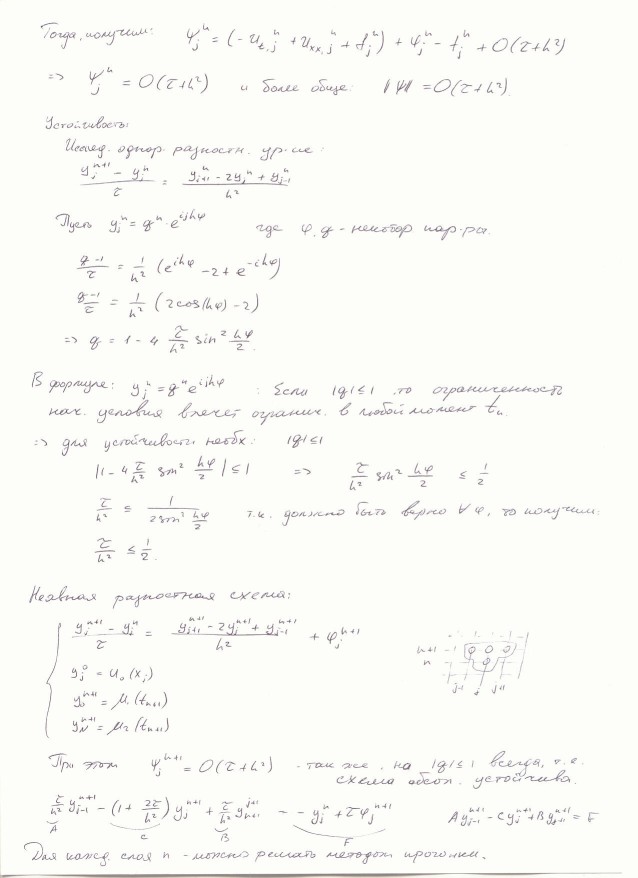 Тогда, получим: ψ_j^n = (-u_{t,j}^n + u_{xx,j}^n + f_j^n) + φ_j^n - f_j^n + O(τ+h²)
=> ψ_j^n = O(τ+h²) и более обще: ‖ψ‖ = O(τ+h²).
Устойчивость:
Исслед. однор. разностн. ур-ие:
(y_j^{n+1} - y_j^n)/τ = (y_{j+1}^n - 2y_j^n + y_{j-1}^n)/h²
Пусть y_j^n = q^n · e^{ijhφ} где φ, q - некотор пар-ры.
(q-1)/τ = 1/h² (e^{ihφ} - 2 + e^{-ihφ})
(q-1)/τ = 1/h² (2cos(hφ) - 2)
=> q = 1 - 4 τ/h² sin² hφ/2.
В формуле: y_j^n = q^n e^{ijhφ} : Если |q| ≤ 1, то ограниченность
нач. условия влечет огранич. в любой момент t_n.
=> для устойчивости необх: |q| ≤ 1
|1 - 4 τ/h² sin² hφ/2| ≤ 1 => τ/h² sin² hφ/2 ≤ 1/2
τ/h² ≤ 1/(2sin² hφ/2) т.к. должно быть верно ∀ φ, то получим:
τ/h² ≤ 1/2.
Неявная разностная схема:
(y_j^{n+1} - y_j^n)/τ = (y_{j+1}^{n+1} - 2y_j^{n+1} + y_{j-1}^{n+1})/h² + φ_j^{n+1}
y_j^0 = u_0(x_j)
y_0^{n+1} = μ_1(t_{n+1})
y_N^{n+1} = μ_2(t_{n+1})
n+1
n
j-1 j j+1
При этом ψ_j^{n+1} = O(τ+h²) - так же, но |q| ≤ 1 всегда, т.е.
схема абсол. устойчива.
τ/h² y_{j-1}^{n+1} - (1 + 2τ/h²) y_j^{n+1} + τ/h² y_{n+1}^{j+1} - - y_j^n + τφ_j^{n+1} A y_{j-1}^{n+1} - C y_j^{n+1} + B y_{j+1}^{n+1} = F
A C B F
Для кажд. слоя n - можно решать методом прогонки.